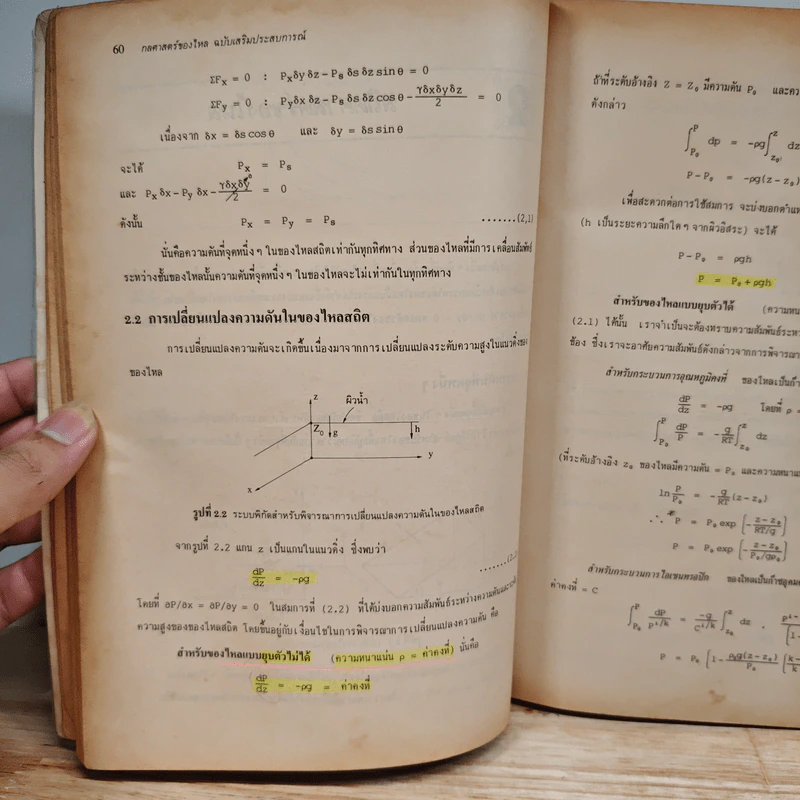 60 กลศาสตร์ของไหล ฉบับเสริมประสบการณ์
ΣFx = 0 : Pxδy δz − Ps δs δz sin θ = 0
ΣFy = 0 : Pyδx δz − Ps δs δz cos θ − γδxδyδz/2 = 0
เนื่องจาก δx = δs cos θ และ δy = δs sin θ
จะได้ Px = Ps
และ Px δx − Py δx − γδxδy/2 = 0
ดังนั้น Px = Py = Ps .......(2,1)
นั่นคือความดันที่จุดหนึ่ง ๆ ในของไหลสถิตเท่ากันทุกทิศทาง ส่วนของไหลที่มีการเคลื่อนสัมพัทธ์
ระหว่างชั้นของไหลนั้นความดันที่จุดหนึ่ง ๆ ในของไหลจะไม่เท่ากันในทุกทิศทาง
2.2 การเปลี่ยนแปลงความดันในของไหลสถิต
การเปลี่ยนแปลงความดันจะเกิดขึ้นเนื่องมาจากการเปลี่ยนแปลงระดับความสูงในแนวดิ่งของ
ของไหล
z
ผิวน้ำ
Z0 g h
y
x
รูปที่ 2.2 ระบบพิกัดสำหรับพิจารณาการเปลี่ยนแปลงความดันในของไหลสถิต
จากรูปที่ 2.2 แกน z เป็นแกนในแนวดิ่ง ซึ่งพบว่า
dP/dz = −ρg .......(2.
โดยที่ ∂P/∂x = ∂P/∂y = 0 ในสมการที่ (2.2) ที่ได้บ่งบอกความสัมพันธ์ระหว่างความดันและ
ความสูงของของไหลสถิต โดยขึ้นอยู่กับเงื่อนไขในการพิจารณาการเปลี่ยนแปลงความดัน คือ
สำหรับของไหลแบบยุบตัวไม่ได้ (ความหนาแน่น ρ = ค่าคงที่) นั่นคือ
dP/dz = −ρg = ค่าคงที่
ถ้าที่ระดับอ้างอิง Z = Z₀ มีความดัน P₀ และคว
ดังกล่าว
∫P₀^P dp = −ρg∫z₀^z dz
P − P₀ = −ρg(z − z₀)
เพื่อสะดวกต่อการใช้สมการ จะบ่งบอกตำแห
(h เป็นระยะความลึกใด ๆ จากผิวอิสระ) จะได้
P − P₀ = ρgh
P = P₀ + ρgh
สำหรับของไหลแบบยุบตัวได้ (ความหนา
(2.1) ได้นั้น เราจำเป็นจะต้องทราบความสัมพันธ์ระหว
ข้อง ซึ่งเราจะอาศัยความสัมพันธ์ดังกล่าวจากการพิจารณา
สำหรับกระบวนการอุณหภูมิคงที่ ของไหลเป็นก๊า
dP/dz = −ρg โดยที่ ρ =
∫P₀^P dP/P = −g/RT ∫z₀^z dz
(ที่ระดับอ้างอิง z₀ ของไหลมีความดัน = P₀ และความหนาแ
ln P/P₀ = −g/RT (z − z₀)
∴ P = P₀ exp [−(z − z₀)/(RT/g)]
P = P₀ exp [−(z − z₀)/(P₀/gρ₀)]
สำหรับกระบวนการไอเซนทรอปิก ของไหลเป็นก๊าซอุดมค
ค่าคงที่ = C
∫P₀^P dP/P^1/k = −g/C^1/k ∫z₀^z dz ,
P = P₀ [1 − ρ₀g(z − z₀)/P₀